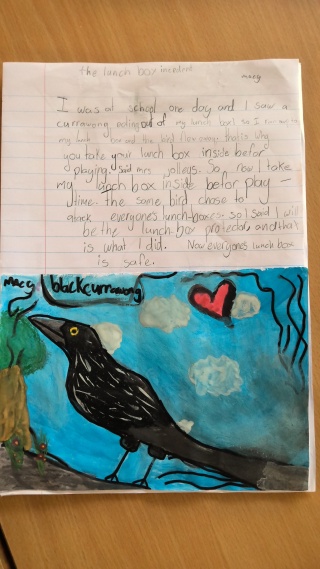 the lunch box incident
macy
I was at school one day and I saw a
currawong eating out of my lunch box! so I ran over to
my lunch box and the bird flew away. that is why
you take your lunch box inside befor
playing. said mrs volleys. So now I take
my lunch box inside befor play-
time. the same bird chose to
atack everyones lunch-boxes. so I said I will
be the lunch box protecter, and that
is what I did. Now everyones lunch box
is safe.
Macy
blackcurrawong